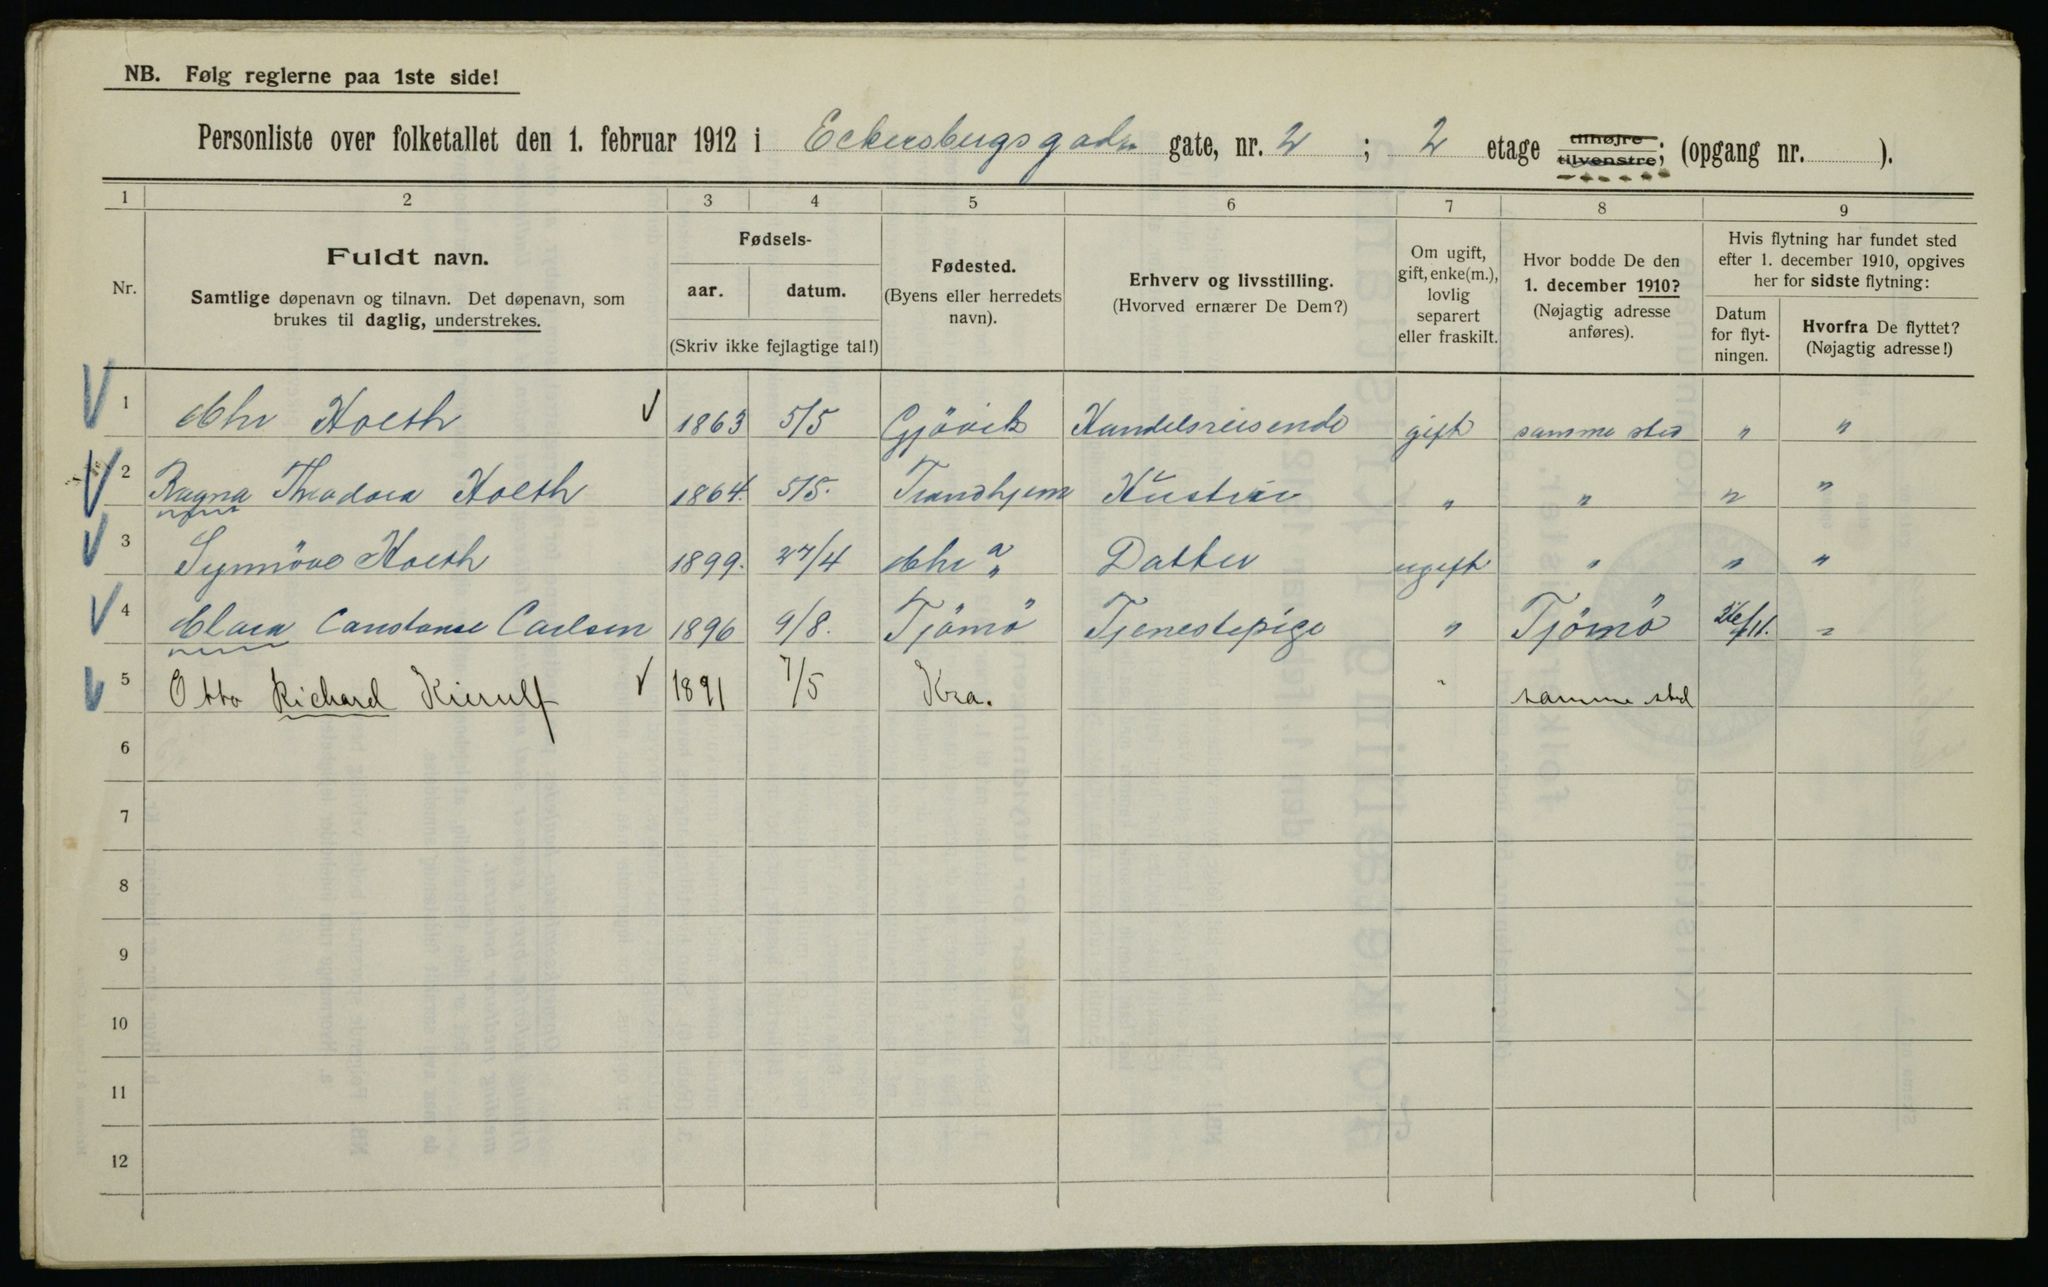 NB. Følg reglerne paa 1ste side!
Personliste over folketallet den 1. februar 1912 i Eckersbergsgaden gate, nr. 2 ; 2 etage tilhøjre tilvenstre; (opgang nr. ).
1 2 3 4 5 6 7 8 9
Nr.
Fuldt navn.
Samtlige døpenavn og tilnavn. Det døpenavn, som
brukes til daglig, understrekes.
Fødsels-
aar. datum.
(Skriv ikke fejlagtige tal!)
Fødested.
(Byens eller herredets
navn).
Erhverv og livsstilling.
(Hvorved ernærer De Dem?)
Om ugift,
gift, enke(m.),
lovlig
separert
eller fraskilt.
Hvor bodde De den
1. december 1910?
(Nøjagtig adresse
anføres).
Hvis flytning har fundet sted
efter 1. december 1910, opgives
her for sidste flytning:
Datum
for flyt-
ningen.
Hvorfra De flyttet?
(Nøjagtig adresse!)
1 Chr Holth 1863 5/5 Gjövik Handelsreisende gift samme sted " "
2 Ragna Theodora Holth 1864. 5/5. Trondhjem Hustru " " " "
3 Synnöve Holth 1899. 27/4 Chr a " Datter ugift " " "
4 Clara Constanse Carlsen 1896 9/8. Tjömö Tjenestepige " Tjömö "
5 Otto Richard Kierulf 1891 7/5 Kra. " samme sted
6
7
8
9
10
11
12